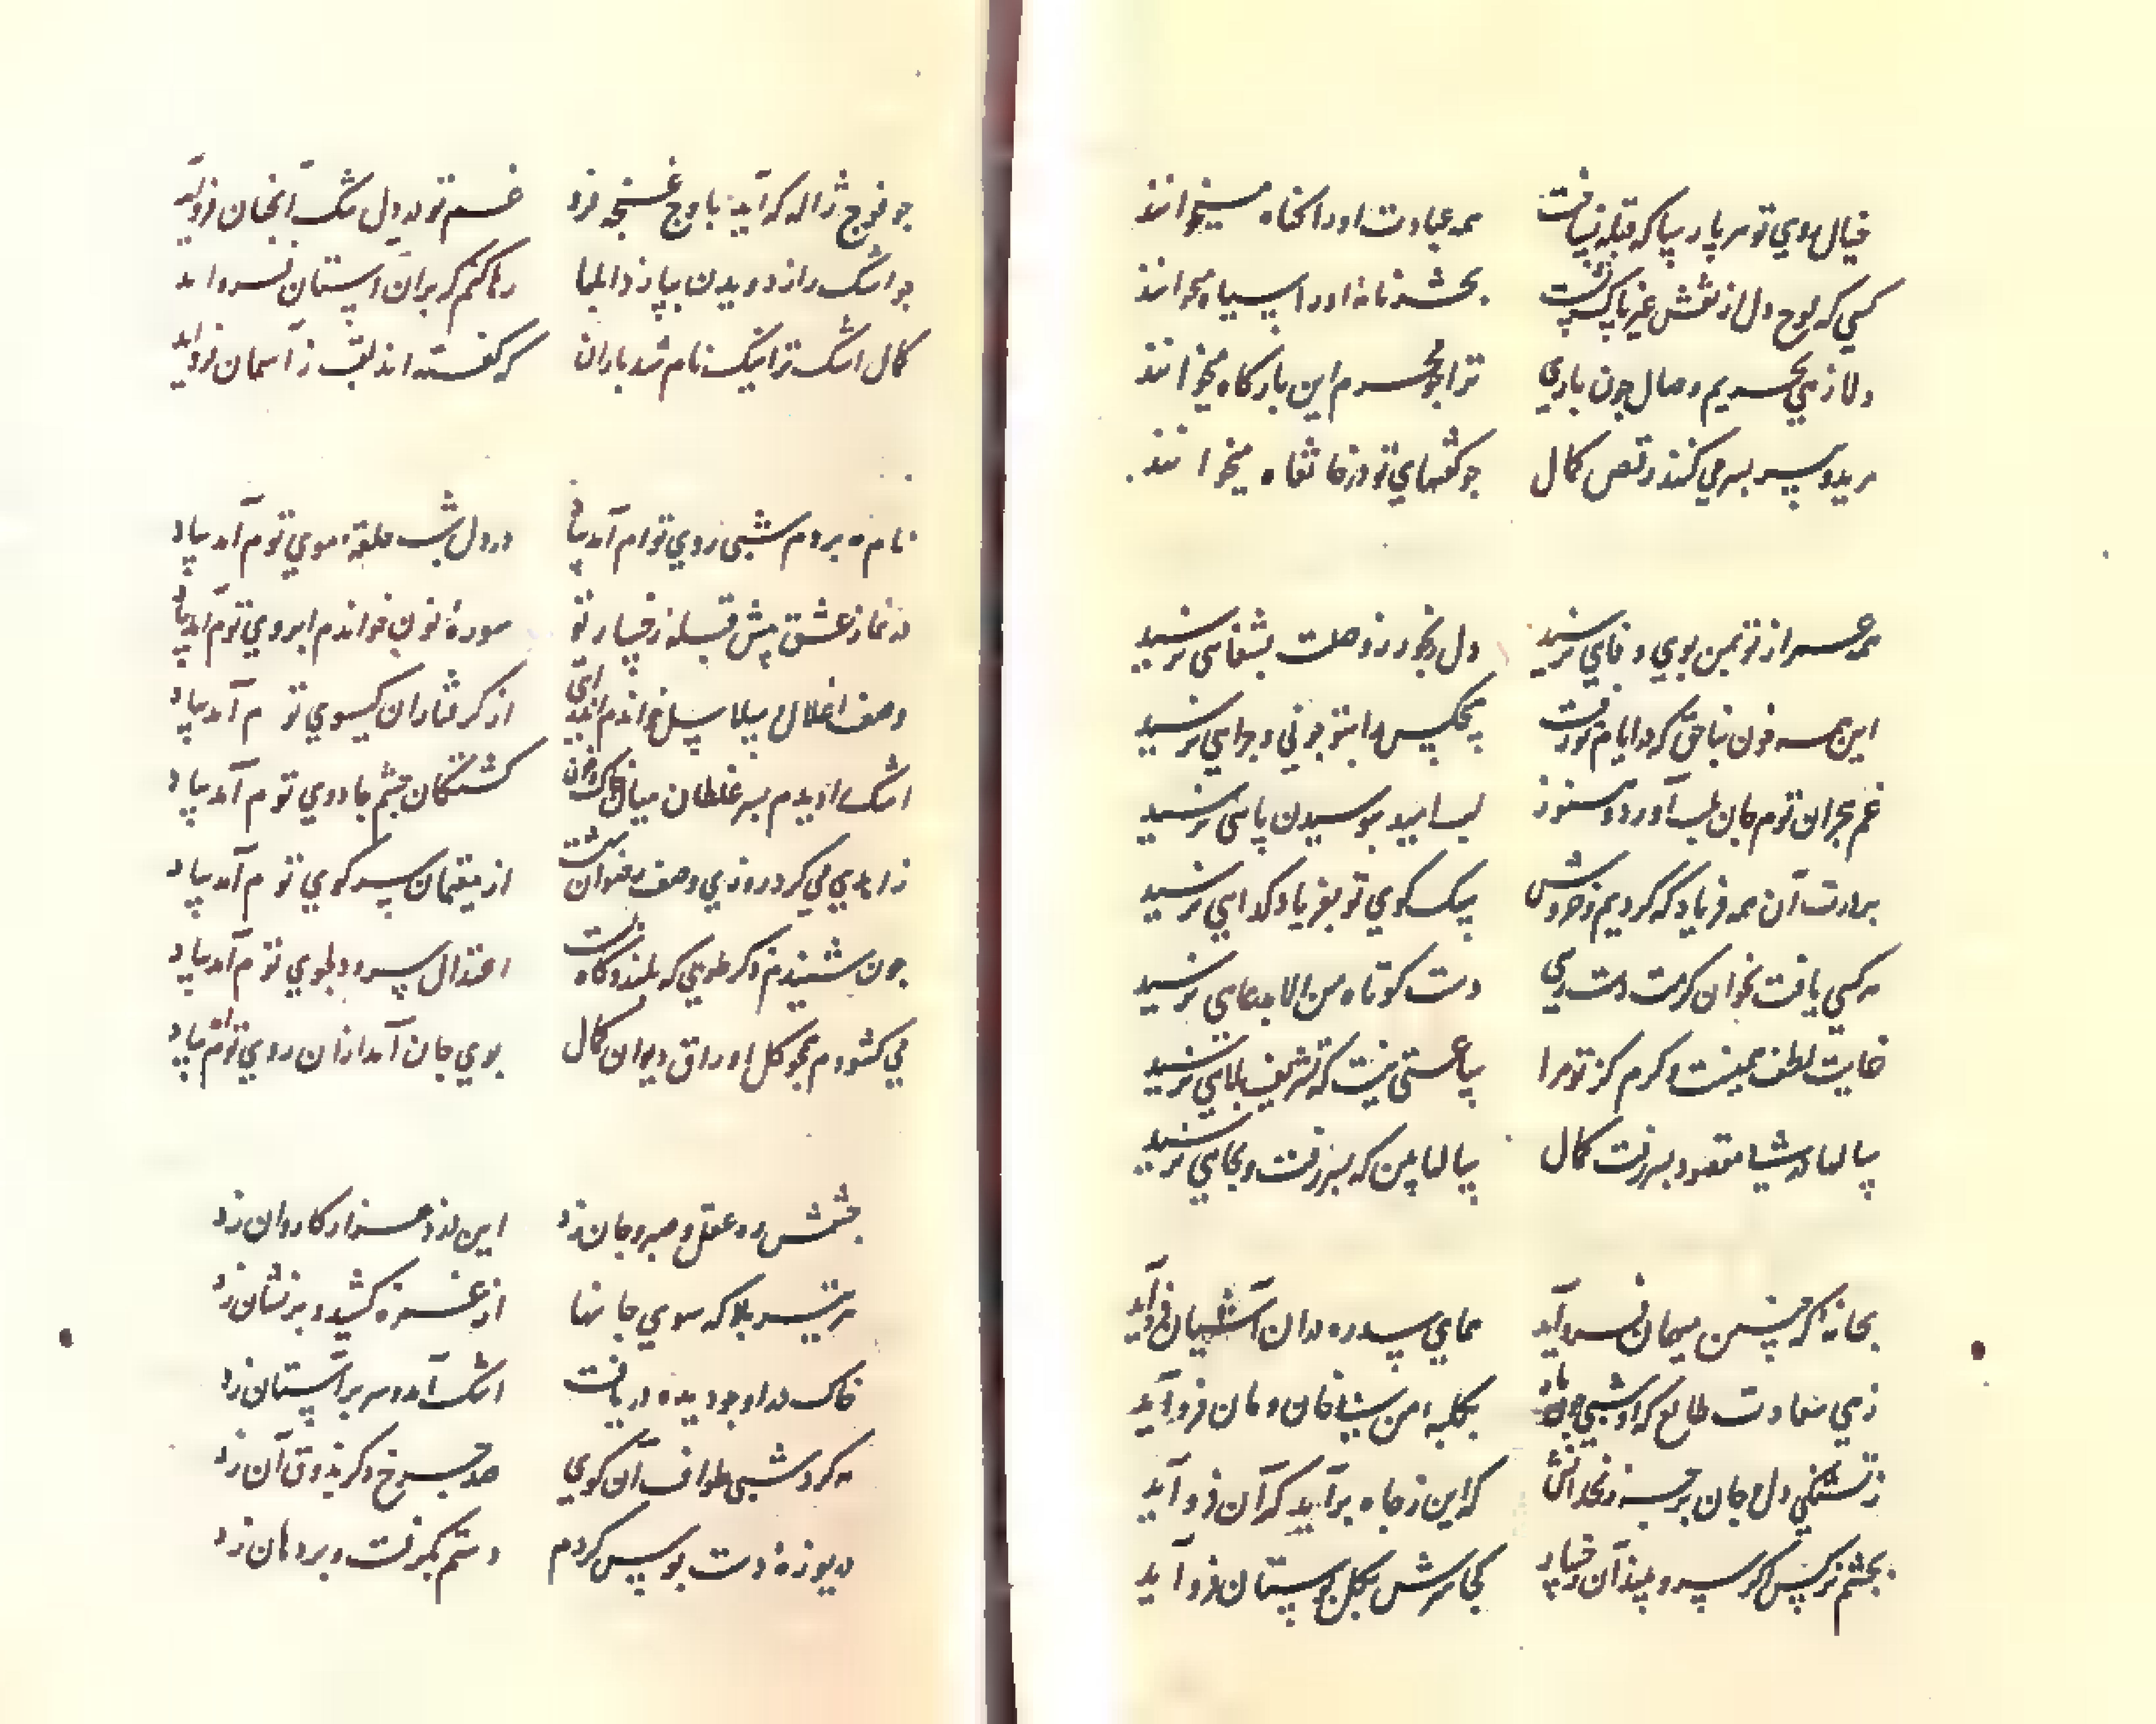 خیال روی تو هر پارسا که قبله نساخت همه عبادت او را گناه میخوانند
کسی که لوح دل از نقش غیر پاک نشست بحشر نامه او را سیاه میخوانند
دلا ز هی بحریم وصال چون یاری ترا جو محرم این بارگاه میخوانند
مرید و پیر بسر می کنند رقص کمال جو گفتهای تو در خانقاه میخوانند
همه عمر از تو بمن بوی وفایی نرسید دل رنجور ز وصلت بشفایی نرسید
این همه خون بناحق که در ایام تو رفت هیچکس را بتو چونی و چرایی نرسید
غم هجران توم جان بلب آورد و هنوز لب امید ببوسیدن پایی نرسید
بر درت آن همه فریاد که کردیم و خروش بسک کوی تو فریاد گدایی نرسید
هر کسی یافت بخوان کرمت دست رسی دست کوتاه من الا بدعایی نرسید
غایت لطف همینست و کرم کز تو مرا ساعتی نیست که تشریف بلایی نرسید
سالها در طلب مقصود بسر رفت کمال سالها بین که بسر رفت و بجایی نرسید
بخانه که چنین میهمان فرود آید همای سدره در آن آشیان فرود آید
زهی سعادت طالع که او شبی چون ماه بکلبه من بیخان و مان فرود آید
ز تشنگی دل و جان بر چه زنخدانش که این ز چاه برآید که آن فرود آید
بچشم نرگس اگر سرو بیند آن رخسار کجا سرش بگل بوستان فرود آید
جو فوج ژاله که آید باوج غنچه فرو غم تو بر دل تنک آنچنان فرود آید
جو اشک را ز دویدن بپا رد ابلها رها کنم که بر آن آستان فرود آید
کمال اشک ترا نیک نام شد باران که گفته اند لقب ز آسمان فرود آید
نام مه بردم شبی روی توام آمد بیاد در دل شب حلقه موی توم آمد بیاد
در نماز عشق پیش قبله رخسار تو سوره نون خواندم ابروی توم آمد بیاد
وصف اغلال و سلاسل خواندم اندر آیتی از گرفتاران گیسوی توم آمد بیاد
اشک را دیدم بسر غلطان میان خاک و خون کشتگان چشم جادوی توم آمد بیاد
زاهدی می کرد روزی وصف رضوان بهشت از مقیمان سر کوی توم آمد بیاد
چون شنیدم ذکر طوبی که بلند و کاه پست اعتدال سرو دلجوی توم آمد بیاد
می کشودم همچو گل اوراق دیوان کمال بوی جان آمد ازان روی توام آمد بیاد
چشمش ره عقل و صبر و جان زد این دزد هزار کاروان زد
هر تیر بلا که سوی جانها از غمزه کشید و بر نشان زد
خاک در او چو دیده دریافت اشک آمد و سر بر آستان زد
مه کرد شبی طواف آن کوی صد چرخ دگر بذوق آن زد
دریوزه دست بوس کردم دستم بگرفت و بر دهان زد